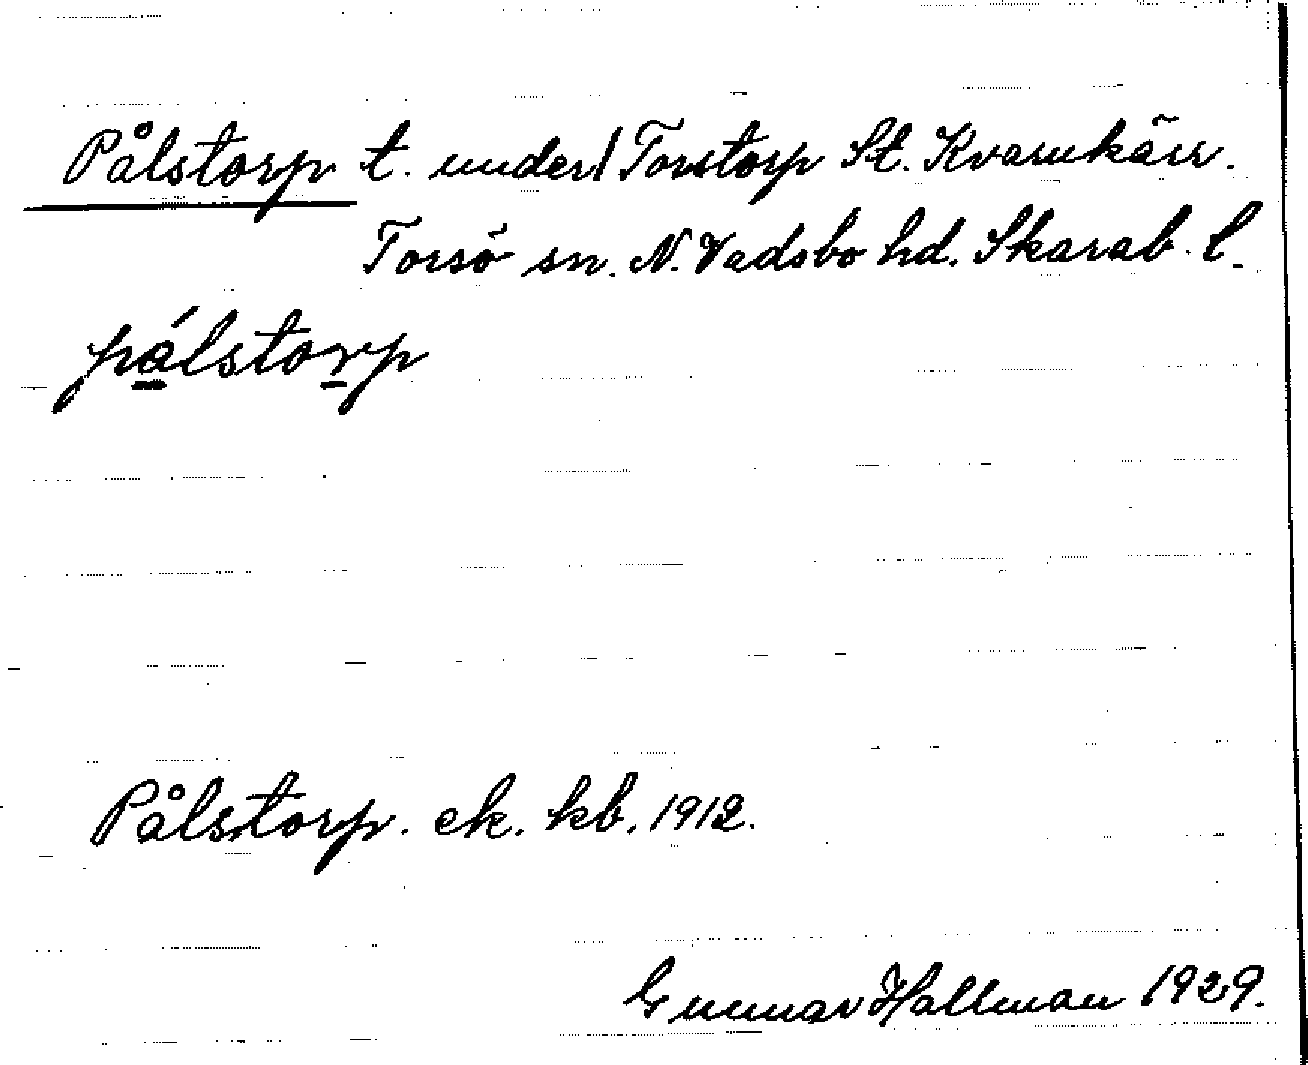 Pålstorp t. under/Torstorp St. Kvarnkärr.
Torsö sn. N. Vadsbo hd. Skarab. l.
pá̱lstor̲p
Pålstorp. ek. kb. 1912.
Gunnar Hallman 1929.